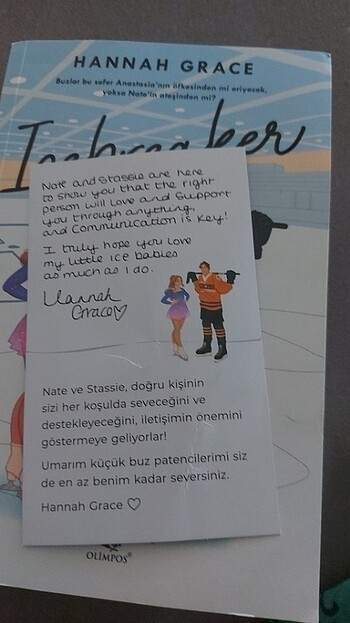 HANNAH GRACE
Buzlar bu sefer Anastasia'nın öfkesinden mi eriyecek,
yoksa Nate'in ateşinden mi?
Icebreaker
Nate and Stassie are here
to show you that the right
person will love and support
you through anything,
and communication is key!
I truly hope you love
my little ice babies
as much as I do.
Hannah
Grace♡
Nate ve Stassie, doğru kişinin
sizi her koşulda seveceğini ve
destekleyeceğini, iletişimin önemini
göstermeye geliyorlar!
Umarım küçük buz patencilerimi siz
de en az benim kadar seversiniz.
Hannah Grace ♡
OLİMPOS®